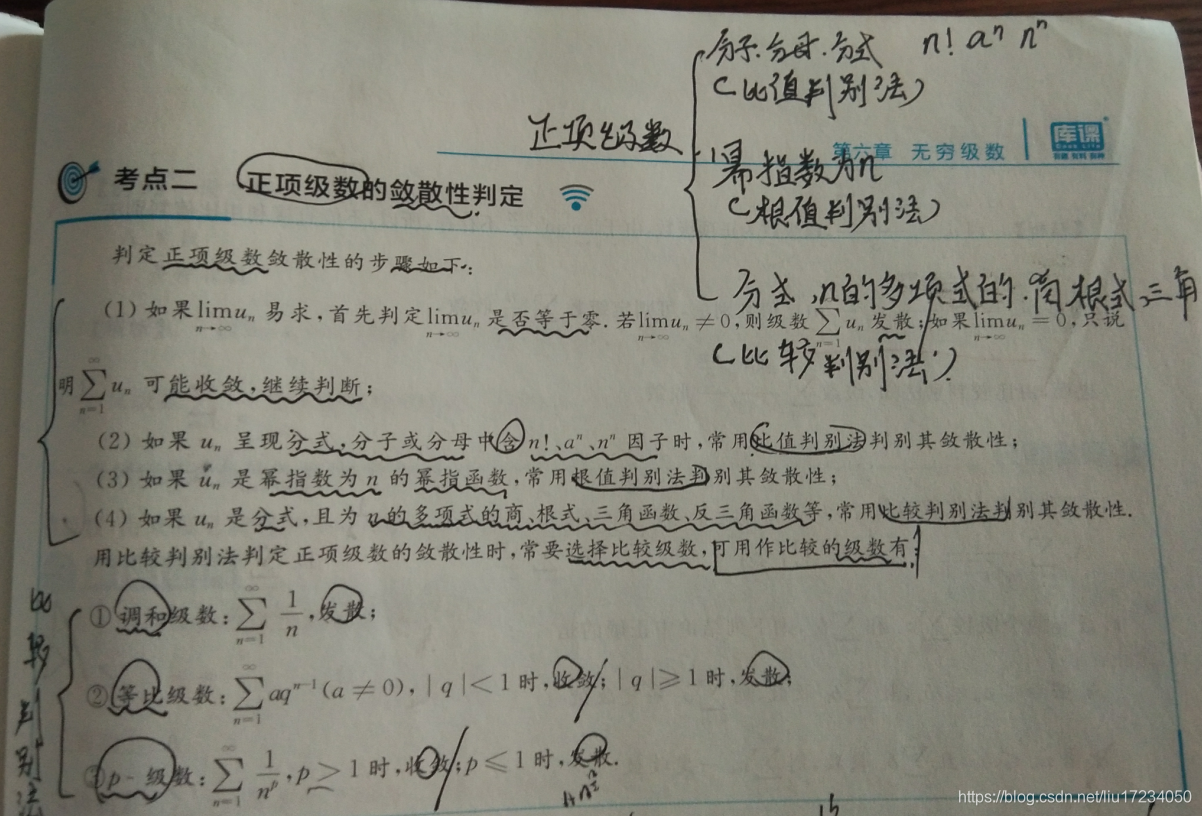 分子.分母.分式 n! aⁿ nⁿ
(比值判别法)
正项级数
第六章 无穷级数
库课
幂指数为n
(根值判别法)
考点二 正项级数的敛散性判定
分式,n的多项式的.商 根式,三角
(比较判别法.)
判定正项级数敛散性的步骤如下:
(1) 如果 lim_{n→∞} uₙ 易求,首先判定 lim_{n→∞} uₙ 是否等于零.若 lim_{n→∞} uₙ ≠ 0,则级数 ∑_{n=1}^{∞} uₙ 发散;如果 lim_{n→∞} uₙ = 0,只说
明 ∑_{n=1}^{∞} uₙ 可能收敛,继续判断;
(2) 如果 uₙ 呈现分式,分子或分母中含 n!、aⁿ、nⁿ 因子时,常用比值判别法判别其敛散性;
(3) 如果 uₙ 是幂指数为 n 的幂指函数,常用根值判别法判别其敛散性;
(4) 如果 uₙ 是分式,且为 n 的多项式的商、根式、三角函数、反三角函数等,常用比较判别法判别其敛散性.
用比较判别法判定正项级数的敛散性时,常要选择比较级数,可用作比较的级数有:
比较判别法
①调和级数: ∑_{n=1}^{∞} 1/n,发散;
②等比级数: ∑_{n=1}^{∞} aqⁿ⁻¹(a ≠ 0),| q |< 1 时,收敛;| q |⩾ 1 时,发散;
③p-级数: ∑_{n=1}^{∞} 1/nᵖ,p > 1 时,收敛;p ⩽ 1 时,发散.
https://blog.csdn.net/liu17234050